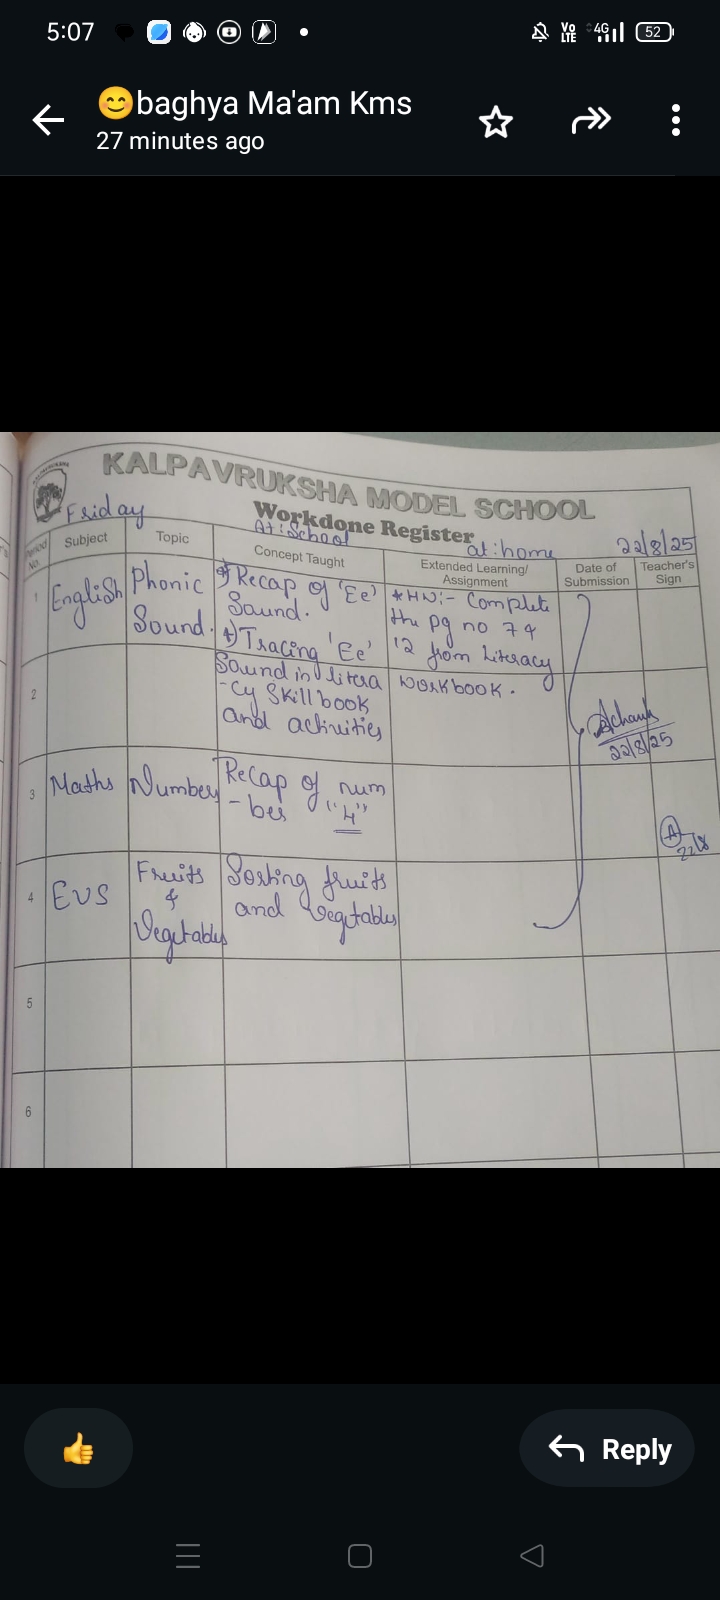 5:07
Vo LTE 4G 52
😊baghya Ma'am Kms
27 minutes ago
KALPAVRUKSHA MODEL SCHOOL
Friday
Workdone Register
At:School
at:home
22/8/25
Period No.
Subject
Topic
Concept Taught
Extended Learning/ Assignment
Date of Submission
Teacher's Sign
1
English
Phonic
Sound.
*) Recap of 'Ee'
Sound.
*) Tracing 'Ee'
Sound in litera
-cy Skill book
and activities
*HW:- Complete
the pg no 7 &
12 from Literacy
workbook.
2
22/8/25
3
Maths
Number
Recap of num
-ber "4"
A
22/8
4
EVS
Fruits
&
Vegetables
Sorting fruits
and vegetables
5
6
👍
Reply